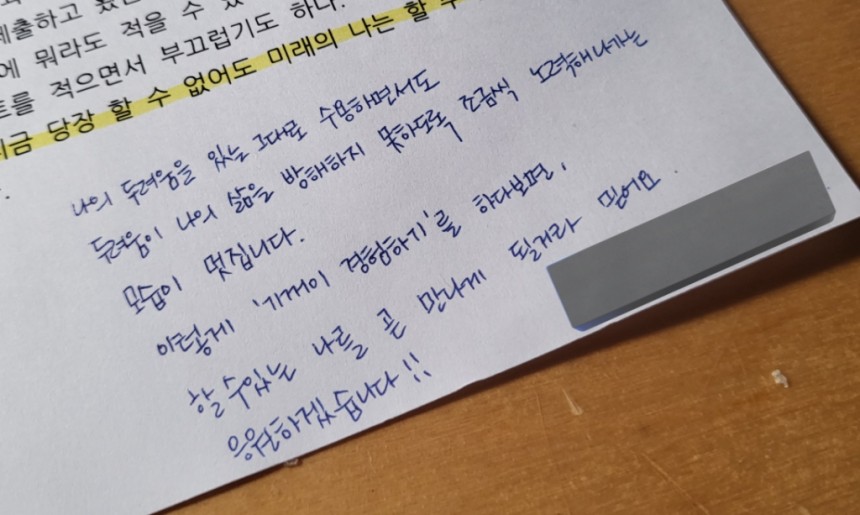 제출하고
에 뭐라도 적을 수
트를 적으면서 부끄럽기도 하다.
지금 당장 할 수 없어도 미래의 나는 할 수
나의 두려움을 있는 그대로 수용하면서도
두려움이 나의 삶을 방해하지 못하도록 조금씩 노력해나가는
모습이 멋집니다.
이렇게 '기꺼이 경험하기'를 하다보면,
할 수있는 나를 곧 만나게 될거라 믿어요.
응원하겠습니다!!